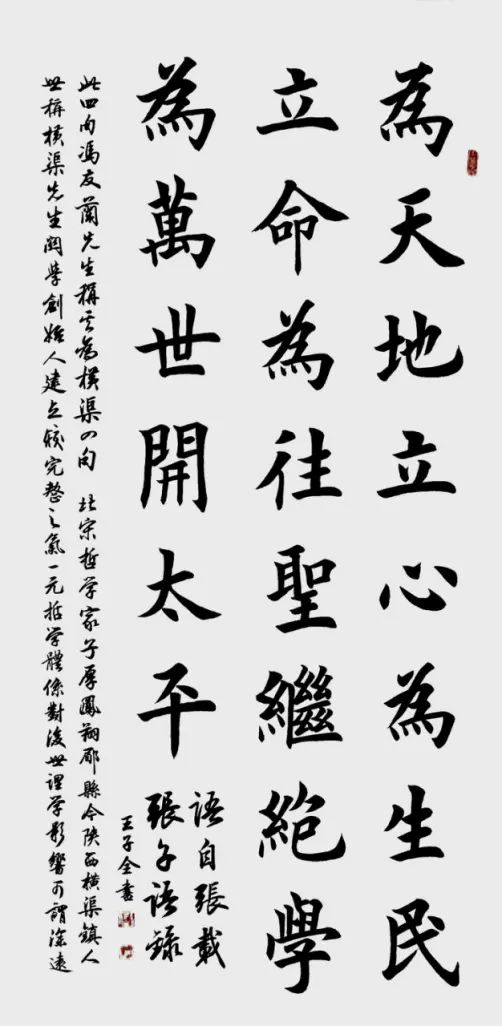 為天地立心為生民
立命為往聖繼絕學
為萬世開太平
語自張載
張子語錄
王子全書
此四句馮友蘭先生稱其為橫渠四句 北宋哲學家子厚鳳翔郿縣今陝西橫渠鎮人
世稱橫渠先生關學創始人建立較完整之氣一元哲學體係對後世理學影響可謂深遠